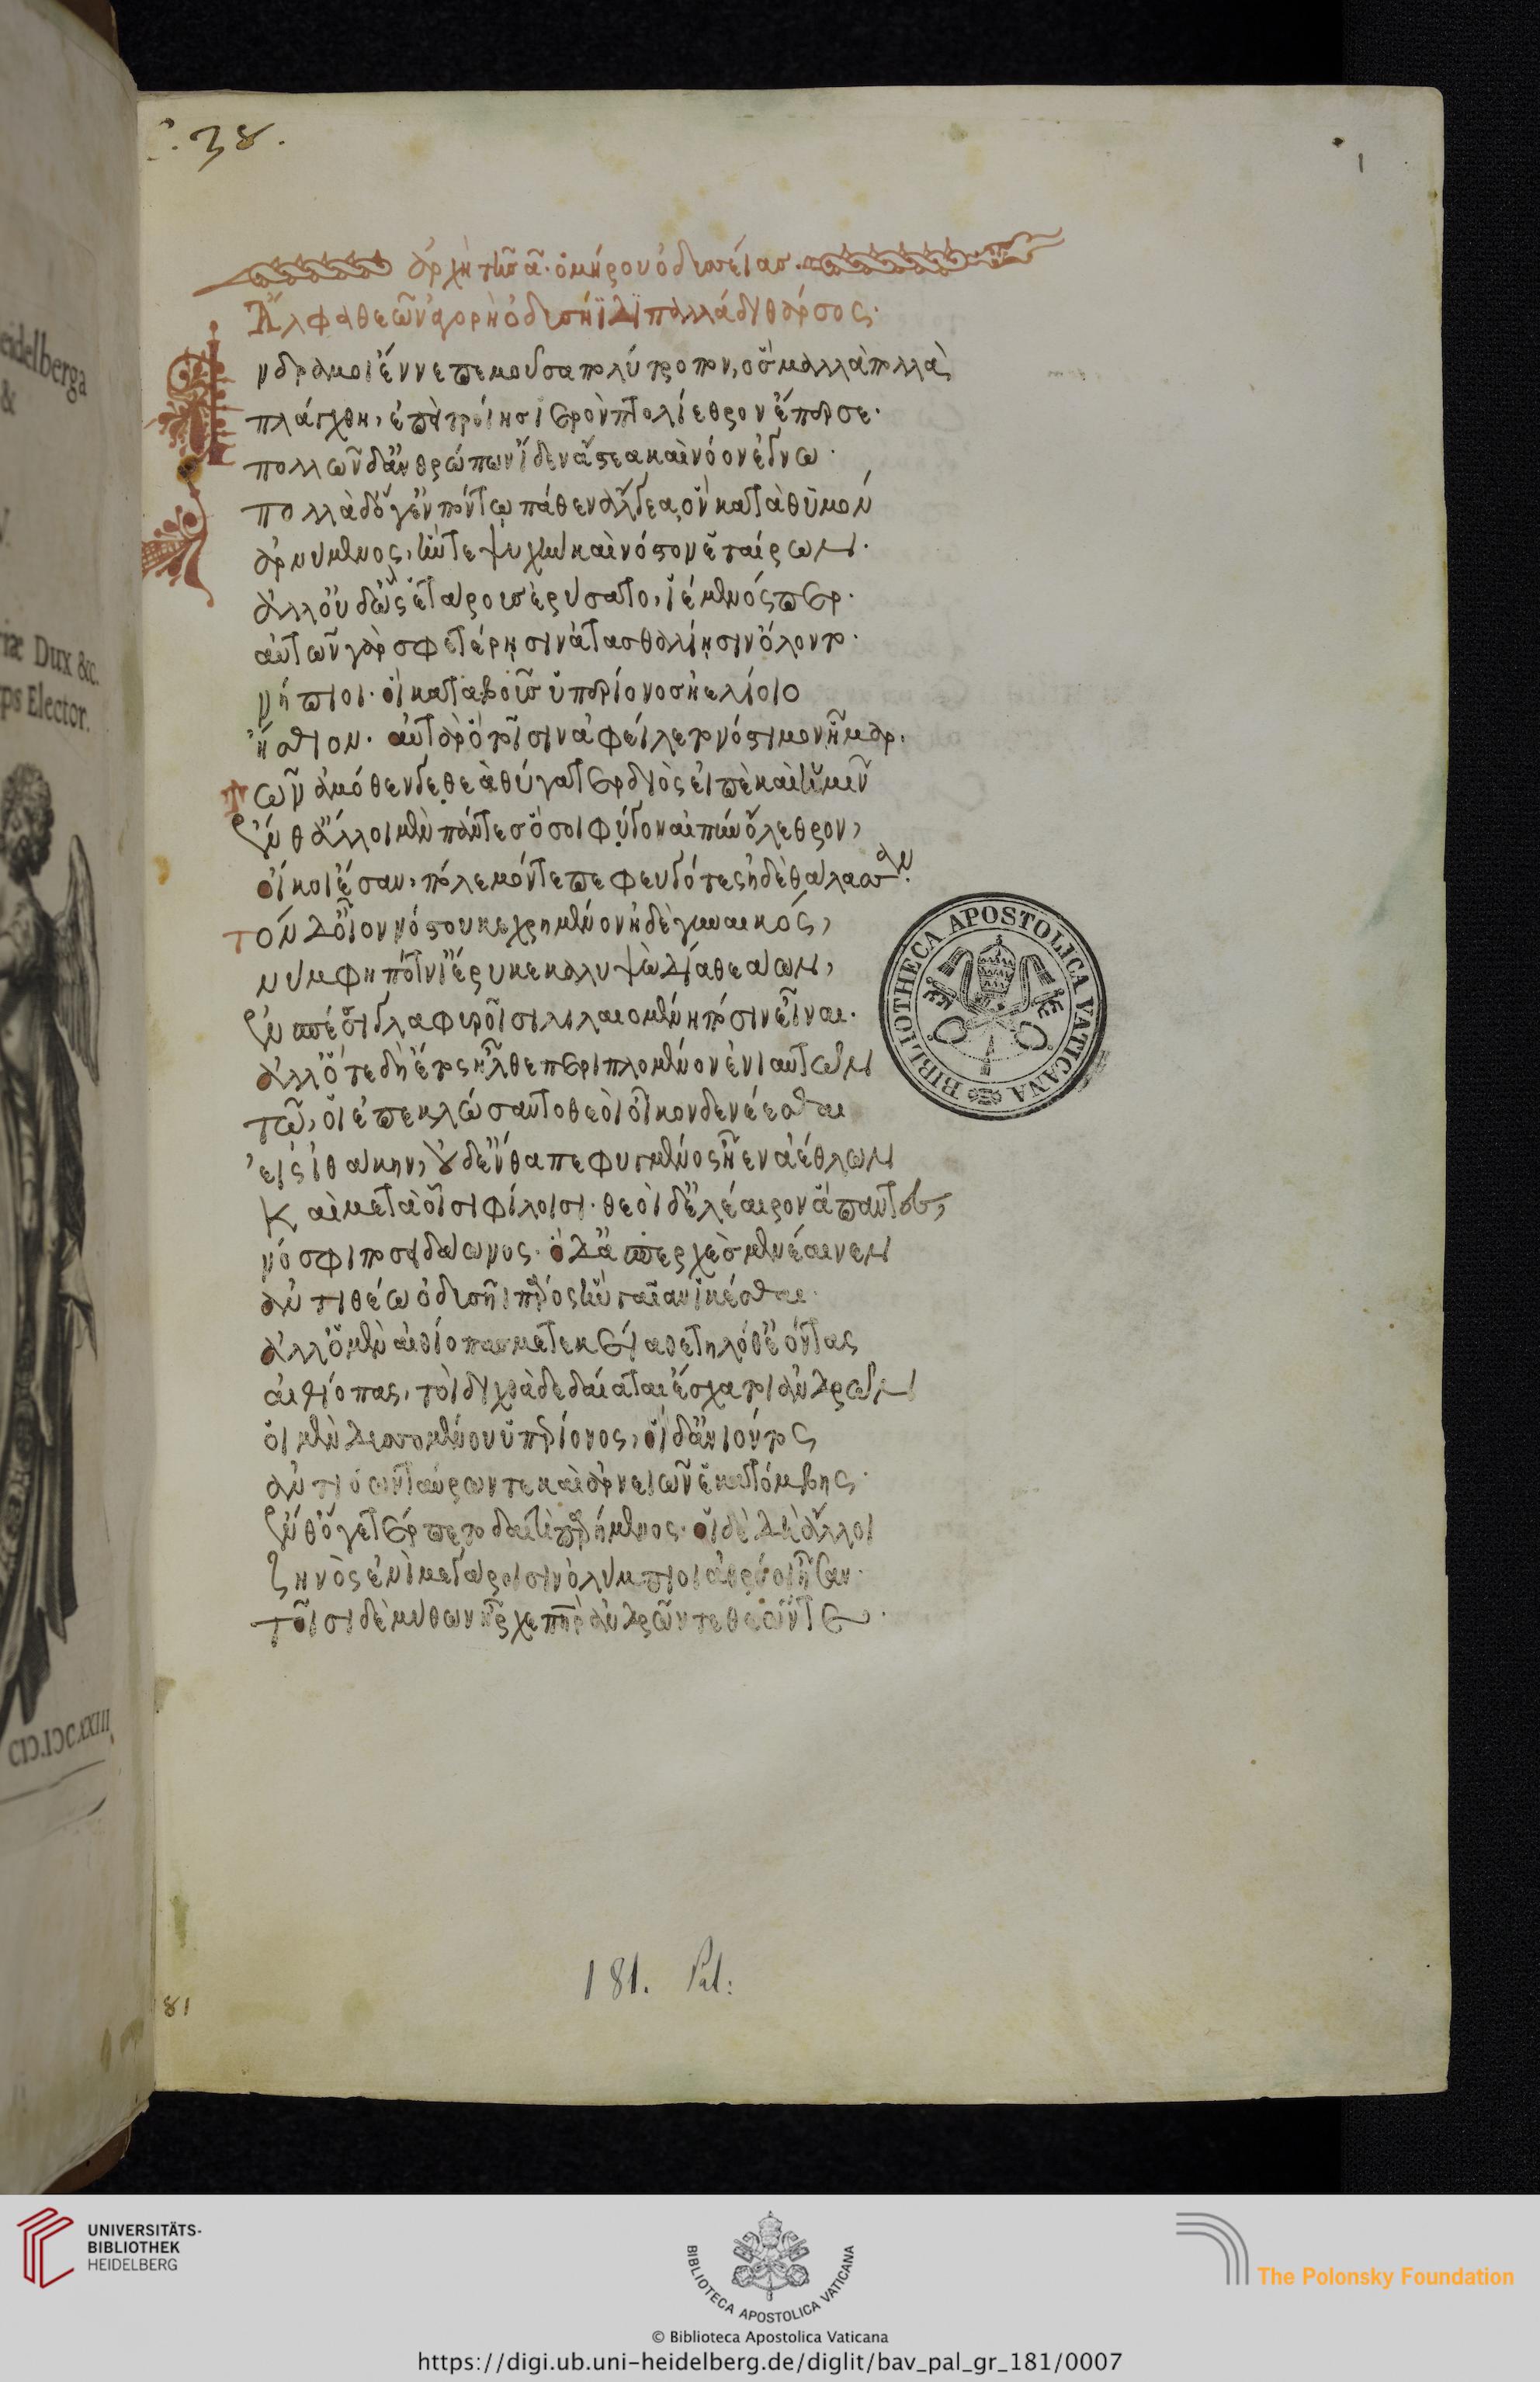 C. 38.
1
ἀρχὴ τῆς ᾱ ὁμήρου ὀδυσσείας
Ἄλφα θεῶν ἀγορὴ ὀδυσηΐδι παλλάδι θάρσος·
νδρα μοι ἔννεπε μοῦσα πολύτροπον, ὃς μάλλα πολλὰ
πλάγχθη, ἐπεὶ τροίης ἱερὸν πτολίεθρον ἔπερσε·
πολλῶν δ' ἀνθρώπων ἴδεν ἄστεα καὶ νόον ἔγνω·
πολλὰ δ' ὅγ' ἐν πόντῳ πάθεν ἄλγεα ὃν κατὰ θῡμον
ἀρνύμενος, ἥν τε ψυχὴν καὶ νόστον ἑταίρων·
ἀλλ' οὐδ' ὣς ἑτάρους ἐρύσατο, ἱέμενός περ·
αὐτῶν γὰρ σφετέρῃσιν ἀτασθαλίῃσιν ὄλοντο·
νήπιοι· οἳ κατὰ βοῦς ὑπερίονος ἠελίοιο
ἤσθιον· αὐτὰρ ὃ τοῖσιν ἀφείλετο νόστιμον ἦμαρ.
τῶν ἀμόθεν γε θεὰ θύγατερ διὸς εἰπὲ καὶ ἡμῖν
ἔνθ' ἄλλοι μὲν πάντες ὅσοι φύγον αἰπὺν ὄλεθρον,
οἴκοι ἔσαν, πόλεμόν τε πεφευγότες ἠδὲ θάλασσαν·
τὸν δ' οἶον νόστου κεχρημένον ἠδὲ γυναικός,
νύμφη πότνι' ἔρυκε καλυψὼ δῖα θεάων,
ἐν σπέσσι γλαφυροῖσι λιλαιομένη πόσιν εἶναι·
ἀλλ' ὅτε δὴ ἔτος ἦλθε περιπλομένον ἐνιαυτῶν
τῶ, οἱ ἐπεκλώσαντο θεοὶ οἶκον δε νέεσθαι
εἰς ἰθάκην, οὐδ' ἔνθα πεφυγμένος ἦεν ἀέθλων
Καὶ μετὰ οἷσι φίλοισι· θεοὶ δ' ἐλέαιρον ἅπαντες,
νόσφι ποσειδάωνος· ὃ δ' ἀσπερχὲς μενέαινεν
ἀντιθέω ὀδυσῆι πάρος ἣν γαῖαν ἱκέσθαι·
ἀλλ' ὃ μὲν αἰθίοπας μετεκείαθε τηλόθ' ἐόντας
αἰθίοπας, τοὶ διχθὰ δεδαίαται ἔσχατοι ἀνδρῶν
οἳ μὲν δυσσομένου ὑπερίονος, οἳ δ' ἀνιόντος
ἀντιόων ταύρων τε καὶ ἀρνειῶν ἑκατόμβης·
ἔνθ' ὅγε τέρπετο δαιτὶ παρήμενος· οἳ δὲ δὴ ἄλλοι
Ζηνὸς ἐνὶ μεγάροισιν ὀλυμπίου ἀθρόοι ἦσαν·
τοῖσι δὲ μύθων ἦρχε πατὴρ ἀνδρῶν τε θεῶν τε·
BIBLIOTHECA APOSTOLICA VATICANA
181. Pal:
81
eidelberga
&
riæ Dux &c.
ps Elector.
CIƆ.IƆC.XXIII
UNIVERSITÄTS-
BIBLIOTHEK
HEIDELBERG
BIBLIOTECA APOSTOLICA VATICANA
The Polonsky Foundation
© Biblioteca Apostolica Vaticana
https://digi.ub.uni-heidelberg.de/diglit/bav_pal_gr_181/0007